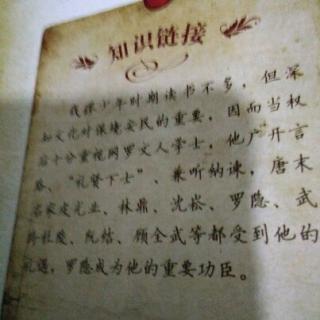 知识链接
钱镠少年时期读书不多，但深
知文化对保境安民的重要，因而当权
后十分重视网罗文人学士，他广开言
路、“礼贤下士”、兼听纳谏，唐末
名家皮光业、林鼎、沈崧、罗隐、武
杜陵、阮结、顾全武等都受到他的
礼遇，罗隐成为他的重要功臣。